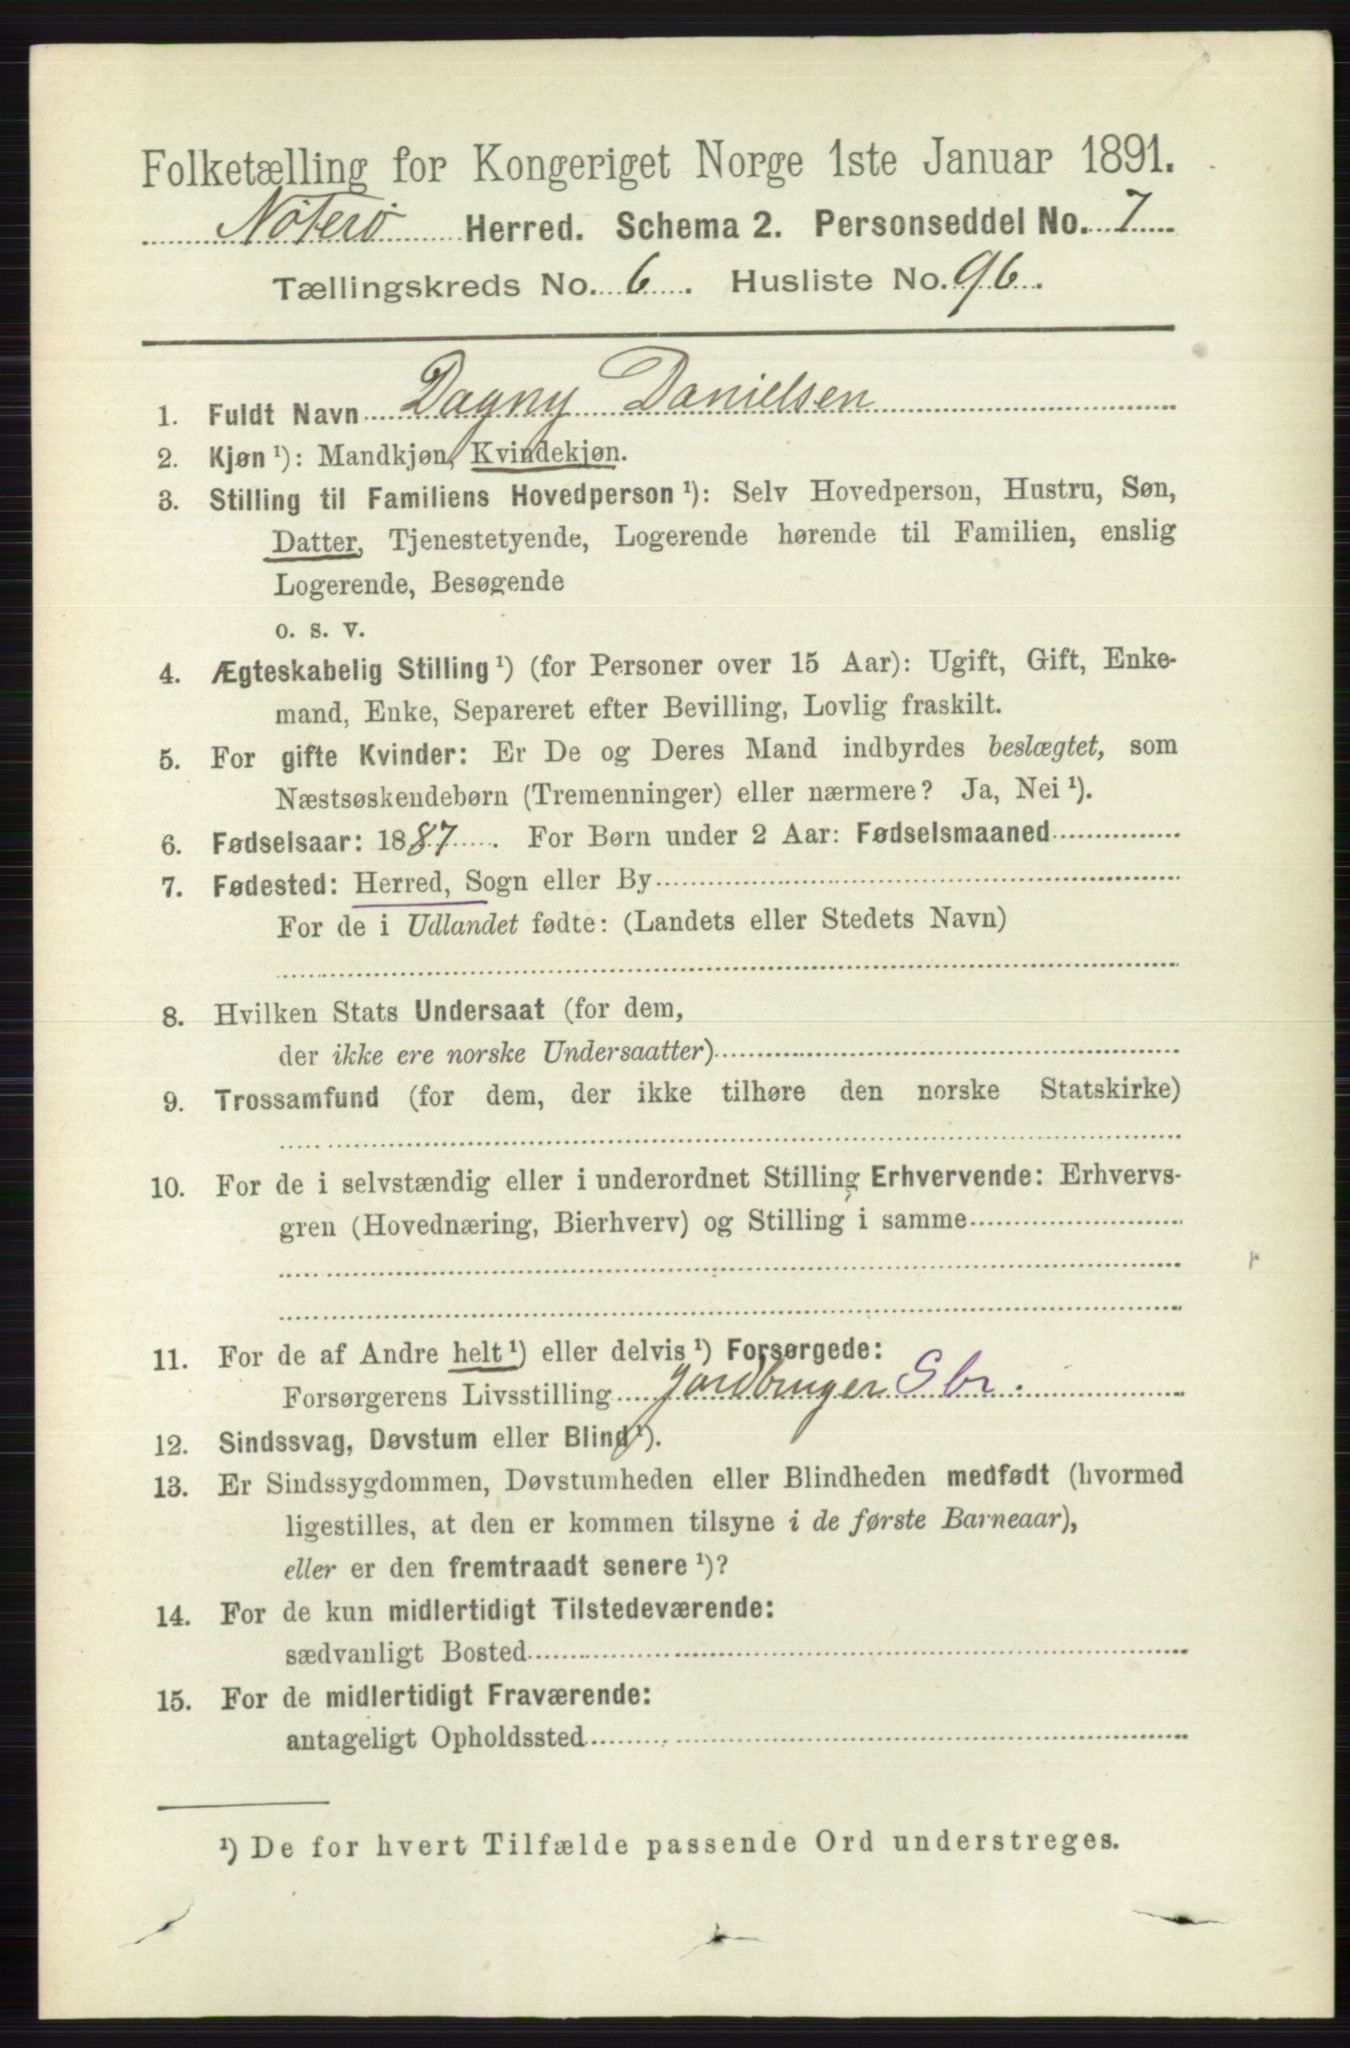 Folketælling for Kongeriget Norge 1ste Januar 1891.
Nøterø Herred. Schema 2. Personseddel No. 7
Tællingskreds No. 6. Husliste No. 96.
1. Fuldt Navn Dagny Danielsen
2. Kjøn ¹): Mandkjøn, Kvindekjøn.
3. Stilling til Familiens Hovedperson ¹): Selv Hovedperson, Hustru, Søn,
Datter, Tjenestetyende, Logerende hørende til Familien, enslig
Logerende, Besøgende
o. s. v.
4. Ægteskabelig Stilling ¹) (for Personer over 15 Aar): Ugift, Gift, Enke-
mand, Enke, Separeret efter Bevilling, Lovlig fraskilt.
5. For gifte Kvinder: Er De og Deres Mand indbyrdes beslægtet, som
Næstsøskendebørn (Tremenninger) eller nærmere? Ja, Nei ¹).
6. Fødselsaar: 1887. For Børn under 2 Aar: Fødselsmaaned
7. Fødested: Herred, Sogn eller By
For de i Udlandet fødte: (Landets eller Stedets Navn)
8. Hvilken Stats Undersaat (for dem,
der ikke ere norske Undersaatter)
9. Trossamfund (for dem, der ikke tilhøre den norske Statskirke)
10. For de i selvstændig eller i underordnet Stilling Erhvervende: Erhvervs-
gren (Hovednæring, Bierhverv) og Stilling i samme
11. For de af Andre helt ¹) eller delvis ¹) Forsørgede:
Forsørgerens Livsstilling Jordbruger Sbr.
12. Sindssvag, Døvstum eller Blind ¹).
13. Er Sindssygdommen, Døvstumheden eller Blindheden medfødt (hvormed
ligestilles, at den er kommen tilsyne i de første Barneaar),
eller er den fremtraadt senere ¹)?
14. For de kun midlertidigt Tilstedeværende:
sædvanligt Bosted
15. For de midlertidigt Fraværende:
antageligt Opholdssted
¹) De for hvert Tilfælde passende Ord understreges.